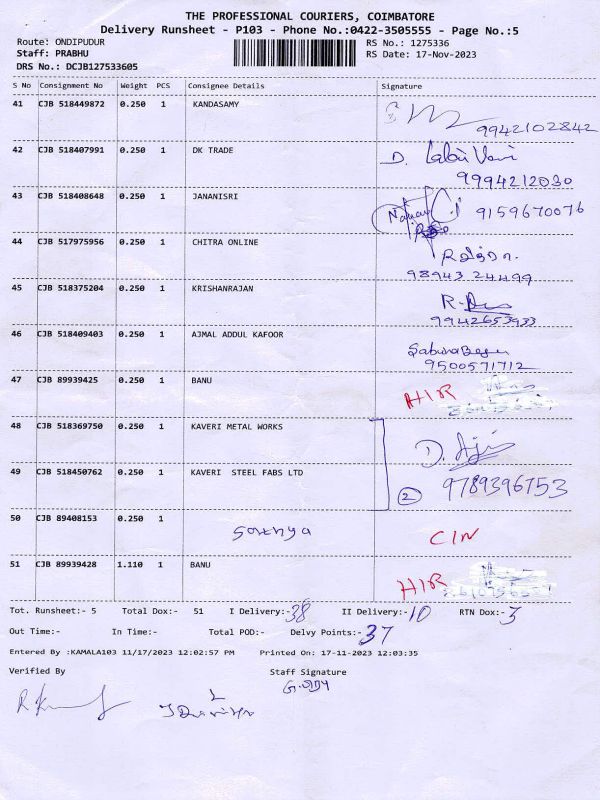 THE PROFESSIONAL COURIERS, COIMBATORE
Delivery Runsheet - P103 - Phone No.:0422-3505555 - Page No.:5
Route: ONDIPUDUR RS No.: 1275336
Staff: PRABHU RS Date: 17-Nov-2023
DRS No.: DCJB127533605
S No Consignment No Weight PCS Consignee Details Signature
41 CJB 518449872 0.250 1 KANDASAMY
9942102842
42 CJB 518407991 0.250 1 DK TRADE
9994212030
43 CJB 518408648 0.250 1 JANANISRI 9159670076
44 CJB 517975956 0.250 1 CHITRA ONLINE
98943 24499
45 CJB 518375204 0.250 1 KRISHANRAJAN
9942653933
46 CJB 518409403 0.250 1 AJMAL ADDUL KAFOOR
Sabura Begu
9500571712
47 CJB 89939425 0.250 1 BANU HIR
48 CJB 518369750 0.250 1 KAVERI METAL WORKS
49 CJB 518450762 0.250 1 KAVERI STEEL FABS LTD
2 9789396753
50 CJB 89408153 0.250 1 CIN
51 CJB 89939428 1.110 1 BANU HIR
Tot. Runsheet:- 5 Total Dox:- 51 I Delivery:- 38 II Delivery:- 10 RTN Dox:- 3
Out Time:- In Time:- Total POD:- Delvy Points:- 37
Entered By :KAMALA103 11/17/2023 12:02:57 PM Printed On: 17-11-2023 12:03:35
Verified By Staff Signature